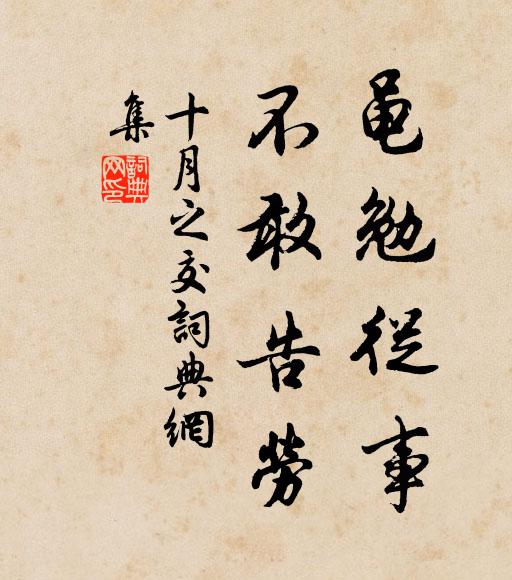 黽勉從事
不敢告勞
十月之交詞典網
集
詞典
网印